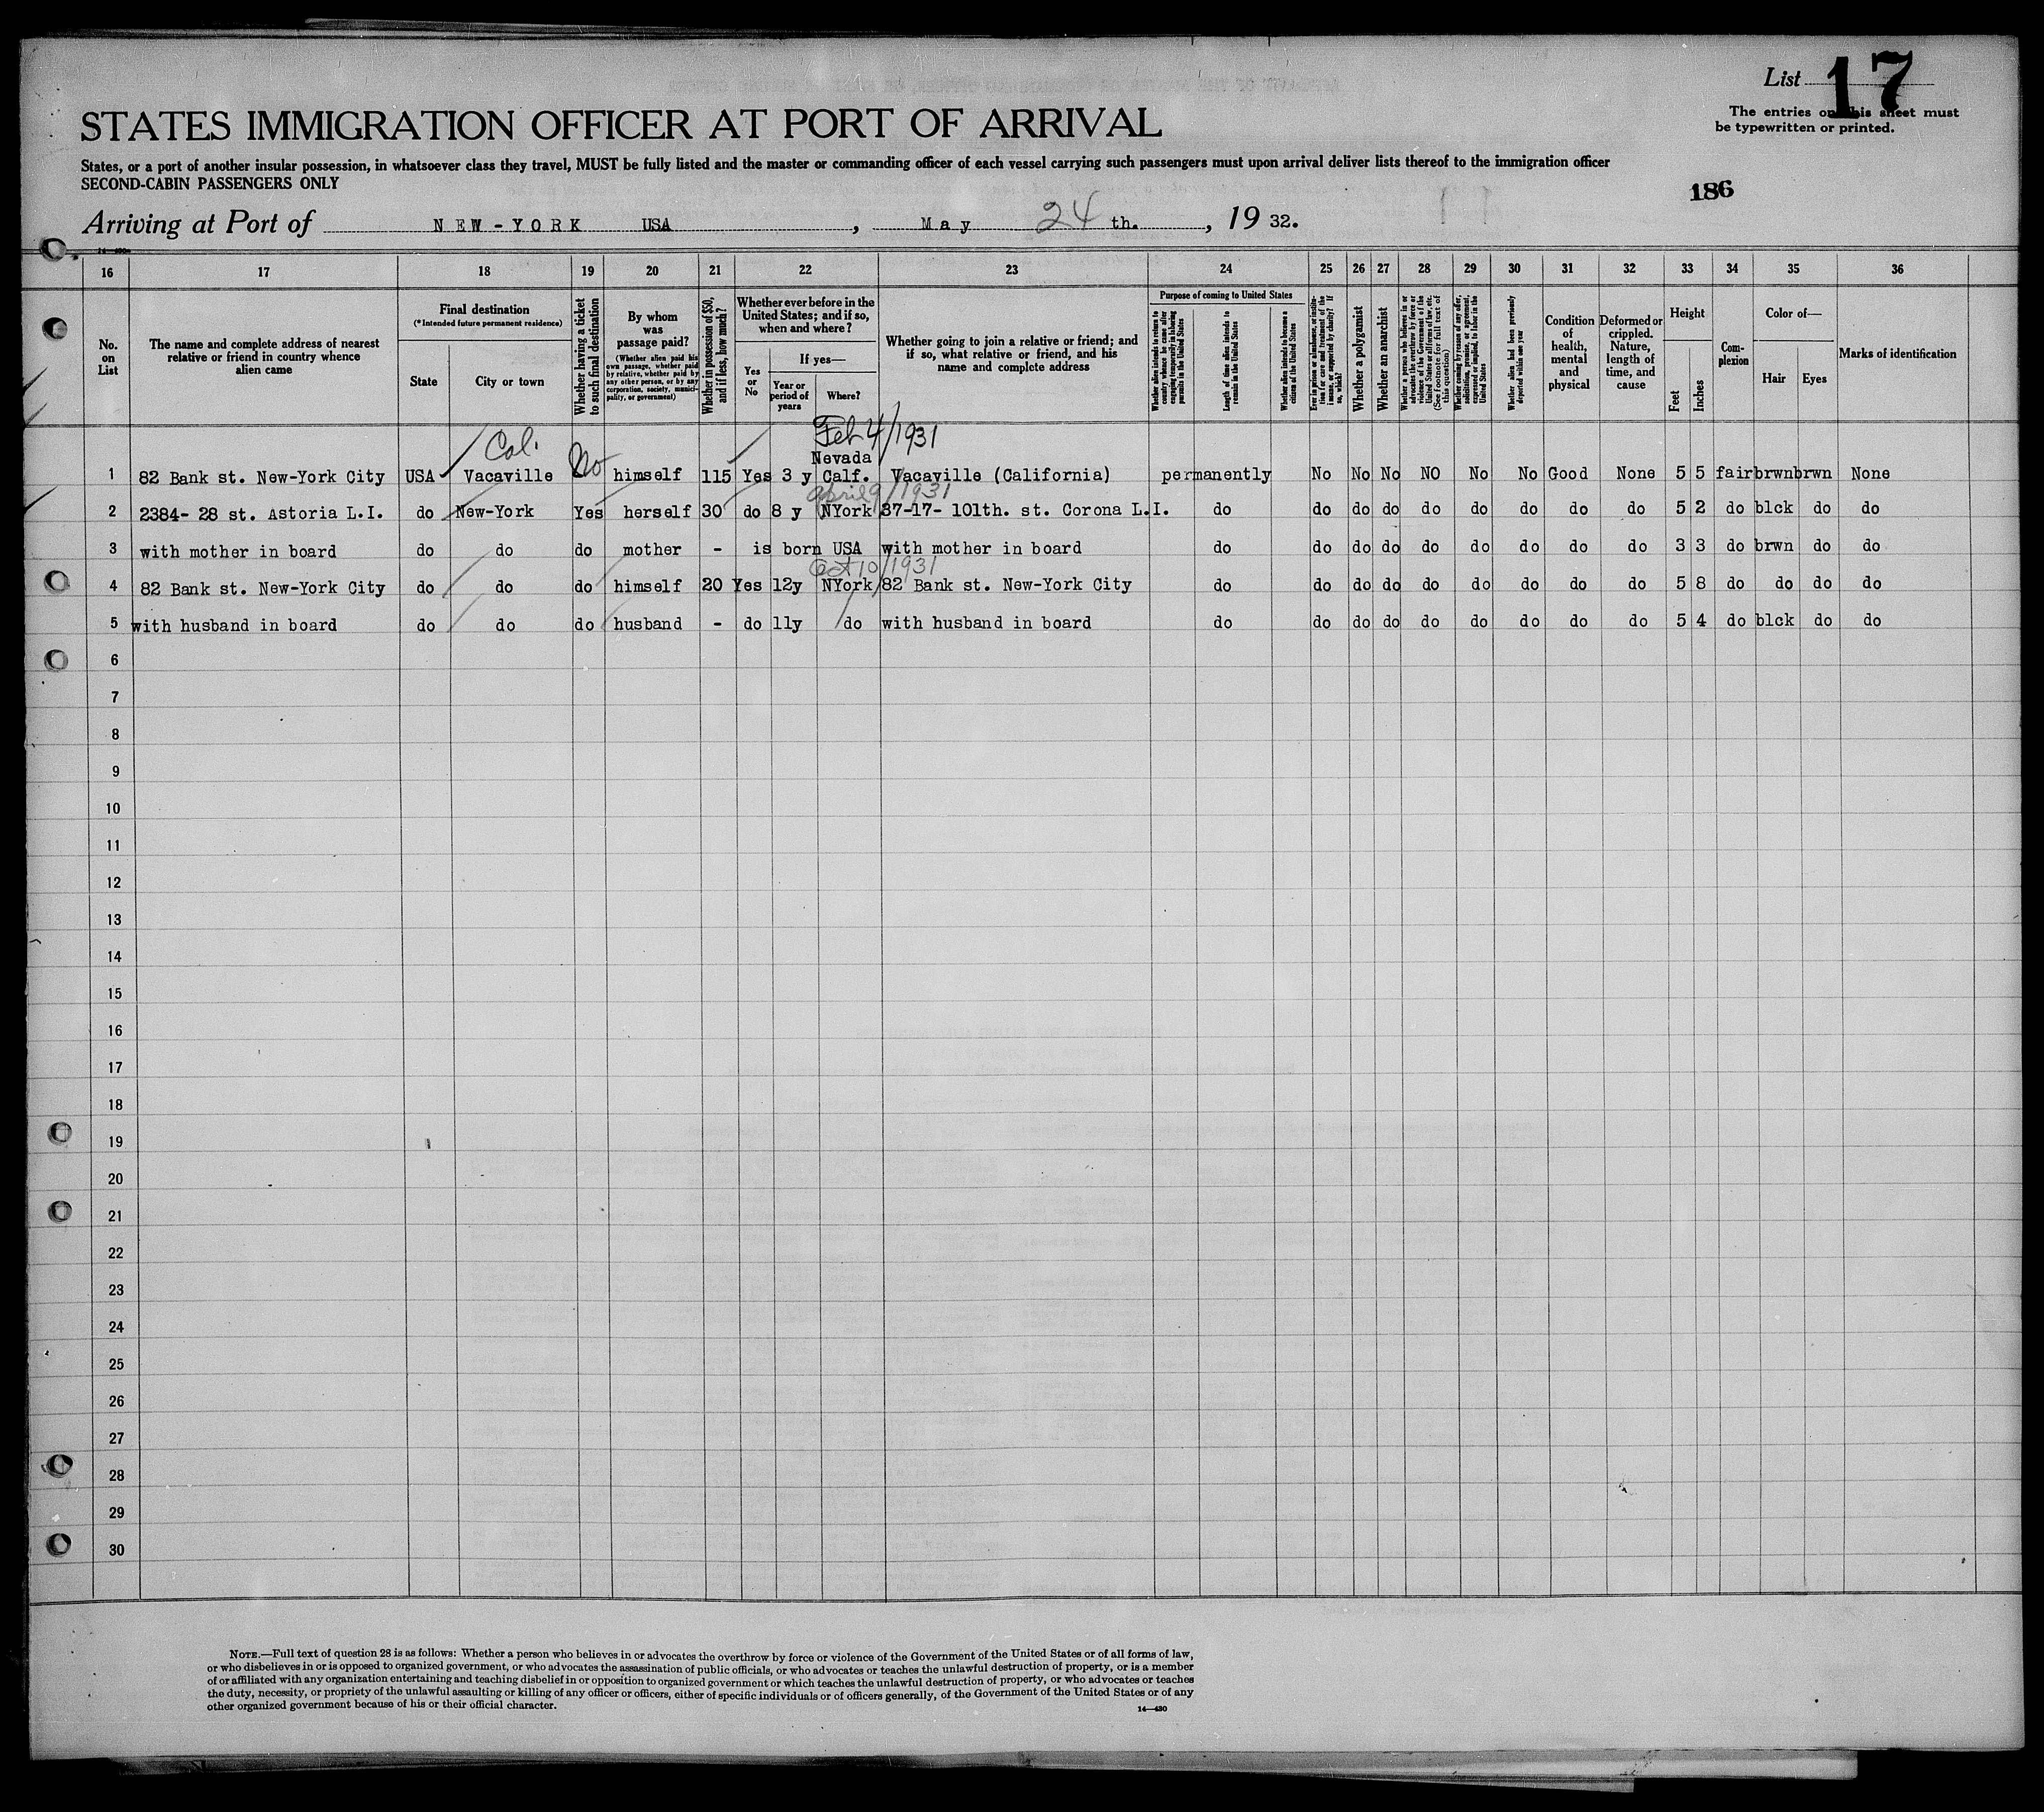 List 17
The entries on this sheet must
be typewritten or printed.
STATES IMMIGRATION OFFICER AT PORT OF ARRIVAL
States, or a port of another insular possession, in whatsoever class they travel, MUST be fully listed and the master or commanding officer of each vessel carrying such passengers must upon arrival deliver lists thereof to the immigration officer
SECOND-CABIN PASSENGERS ONLY
186
Arriving at Port of NEW-YORK USA , May 24 th. , 19 32.
16 17 18 19 20 21 22 23 24 25 26 27 28 29 30 31 32 33 34 35 36
No. on List
The name and complete address of nearest relative or friend in country whence alien came
Final destination
(*Intended future permanent residence)
State
City or town
Whether having a ticket to such final destination
By whom was passage paid?
(Whether alien paid his own passage, whether paid by relative, whether paid by any other person, or by any corporation, society, municipality, or government)
Whether in possession of $50, and if less, how much?
Whether ever before in the United States; and if so, when and where?
Yes or No
If yes—
Year or period of years
Where?
Whether going to join a relative or friend; and if so, what relative or friend, and his name and complete address
Purpose of coming to United States
Whether alien intends to return to country whence he came after engaging temporarily in laboring pursuits in the United States
Length of time alien intends to remain in the United States
Whether alien intends to become a citizen of the United States
Ever in prison or almshouse, or institution for care and treatment of the insane, or supported by charity? If so, which?
Whether a polygamist
Whether an anarchist
Whether a person who believes in or advocates the overthrow by force or violence of the Government of the United States or all forms of law, etc. (See footnote for full text of this question)
Whether coming by reason of any offer, solicitation, promise, or agreement, expressed or implied, to labor in the United States
Whether alien had been previously deported within one year
Condition of health, mental and physical
Deformed or crippled. Nature, length of time, and cause
Height
Feet
Inches
Complexion
Color of—
Hair
Eyes
Marks of identification
Cal. No Feb 4/1931
Nevada
1 82 Bank st. New-York City USA Vacaville himself 115 Yes 3 y Calf. Vacaville (California) permanently No No No NO No No Good None 5 5 fair brwn brwn None
April 9/1931
2 2384- 28 st. Astoria L.I. do New-York Yes herself 30 do 8 y NYork 37-17- 101th. st. Corona L.I. do do do do do do do do do 5 2 do blck do do
3 with mother in board do do do mother - is born USA with mother in board do do do do do do do do do 3 3 do brwn do do
Oct 10/1931
4 82 Bank st. New-York City do do do himself 20 Yes 12y NYork 82 Bank st. New-York City do do do do do do do do do 5 8 do do do do
5 with husband in board do do do husband - do 11y do with husband in board do do do do do do do do do 5 4 do blck do do
6
7
8
9
10
11
12
13
14
15
16
17
18
19
20
21
22
23
24
25
26
27
28
29
30
NOTE.—Full text of question 28 is as follows: Whether a person who believes in or advocates the overthrow by force or violence of the Government of the United States or of all forms of law,
or who disbelieves in or is opposed to organized government, or who advocates the assassination of public officials, or who advocates or teaches the unlawful destruction of property, or is a member
of or affiliated with any organization entertaining and teaching disbelief in or opposition to organized government or which teaches the unlawful destruction of property, or who advocates or teaches
the duty, necessity, or propriety of the unlawful assaulting or killing of any officer or officers, either of specific individuals or of officers generally, of the Government of the United States or of any
other organized government because of his or their official character.
14—480